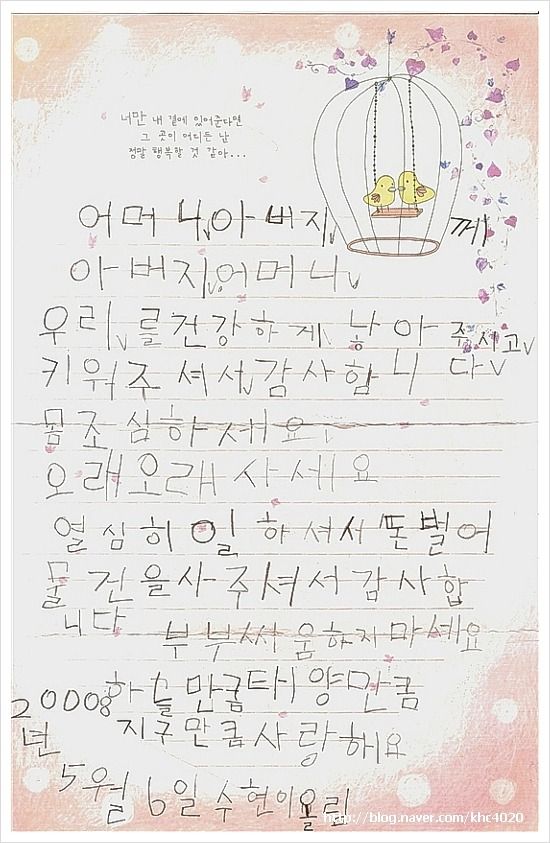 너만 내 곁에 있어준다면
그 곳이 어디든 난
정말 행복할 것 같아...
어머니아버지께
아버지어머니
우리를건강하게 낳아 주시고
키워주셔서감사합니다
몸조심하세요
오래오래사세요
열심히일하셔서돈벌어
물건을사주셔서감사합
니다 부부싸움하지마세요
하늘만큼태양만큼
지구만큼사랑해요
20008년
5월6일수현이올림
http://blog.naver.com/khc4020